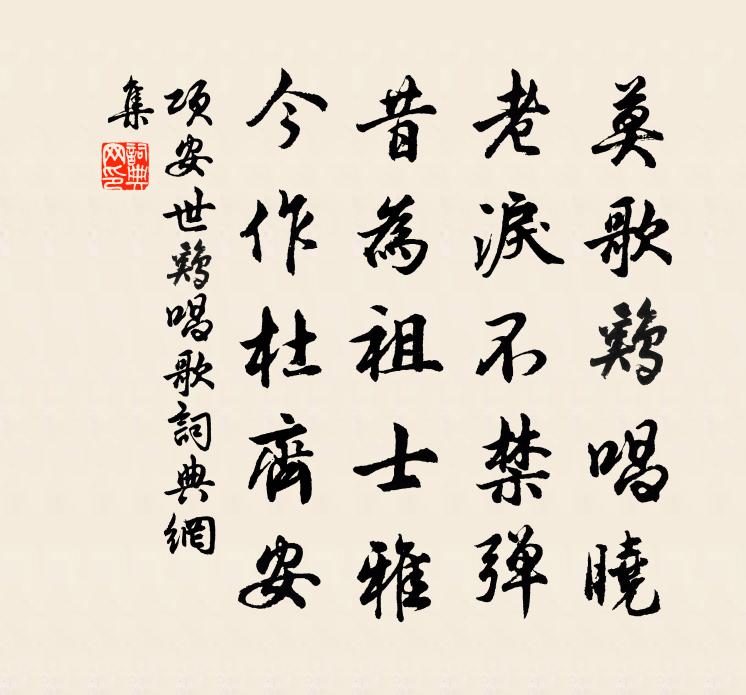 莫歌鷄唱曉
老淚不禁彈
昔為祖士雅
今作杜齊安
項安世鷄唱歌詞典網
集
詞典網印